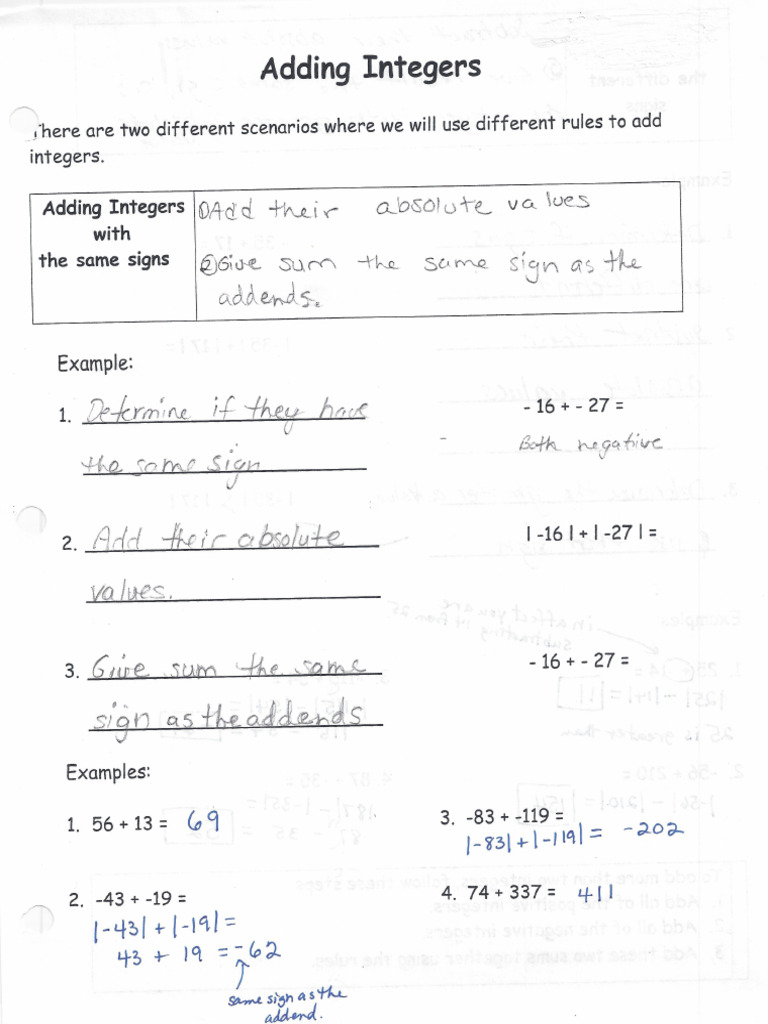 Adding Integers
There are two different scenarios where we will use different rules to add
integers.
Adding Integers
with
the same signs
① Add their absolute values
② Give sum the same sign as the
addends.
Example:
1. Determine if they have
the same sign
- 16 + - 27 =
Both negative
2. Add their absolute
values.
| -16 | + | -27 | =
3. Give sum the same
sign as the addends
- 16 + - 27 =
Examples:
1. 56 + 13 = 69
3. -83 + -119 =
|-83| + |-119| = -202
2. -43 + -19 =
|-43| + |-19| =
43 + 19 = -62
same sign as the
addend.
4. 74 + 337 = 411